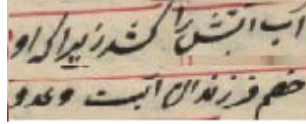 آب آتش را کشد زیرا که او
خصم فرزندان آبست و عدو